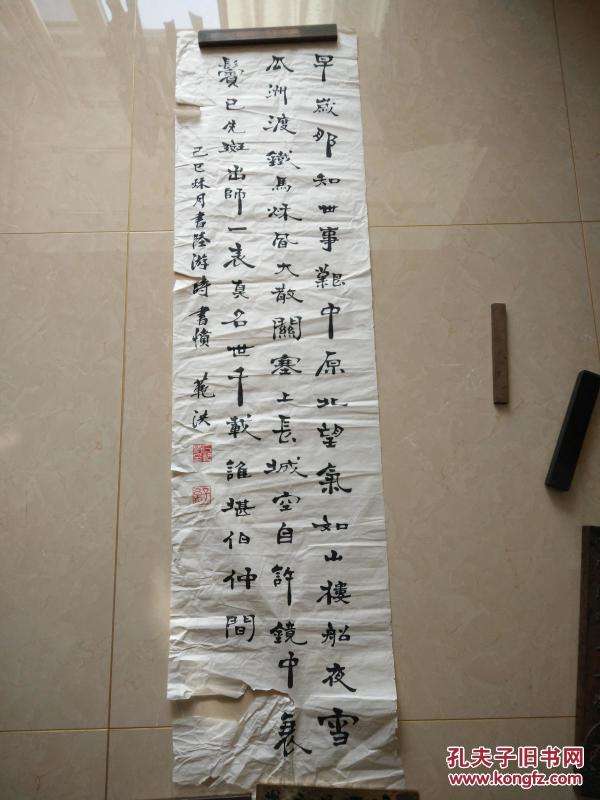 早歲那知世事艱中原北望氣如山樓船夜雪
瓜洲渡鐵馬秋風大散關塞上長城空自許鏡中衰
鬢已先斑出師一表真名世千載誰堪伯仲間
己巳秋月書陸游詩書憤 範洪
孔夫子旧书网
www.kongfz.com